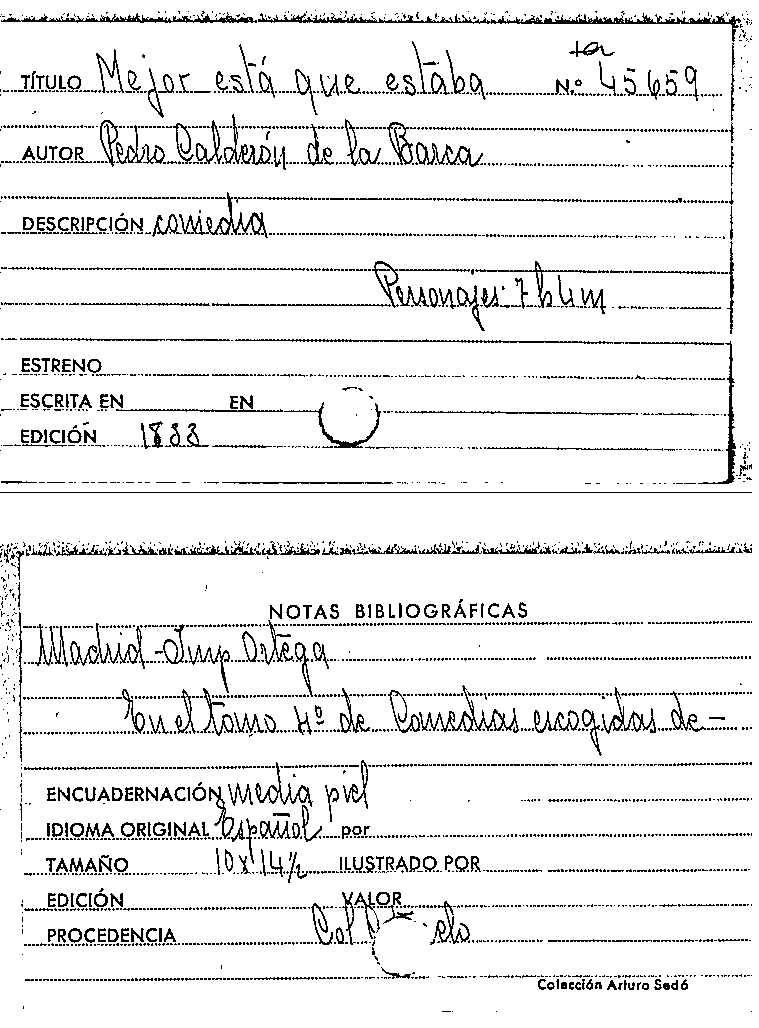 ter
TÍTULO Mejor está que estaba N.º 45659
AUTOR Pedro Calderón de la Barca
DESCRIPCIÓN comedia
Personajes: 7 h 4 m
ESTRENO
ESCRITA EN EN
EDICIÓN 1833
NOTAS BIBLIOGRÁFICAS
Madrid - Imp Ortega
En el tomo 4º de Comedias escogidas de -
ENCUADERNACIÓN media piel
IDIOMA ORIGINAL Español por
TAMAÑO 10 x 14 ½ ILUSTRADO POR
EDICIÓN VALOR
PROCEDENCIA Col
Colección Arturo Sedó